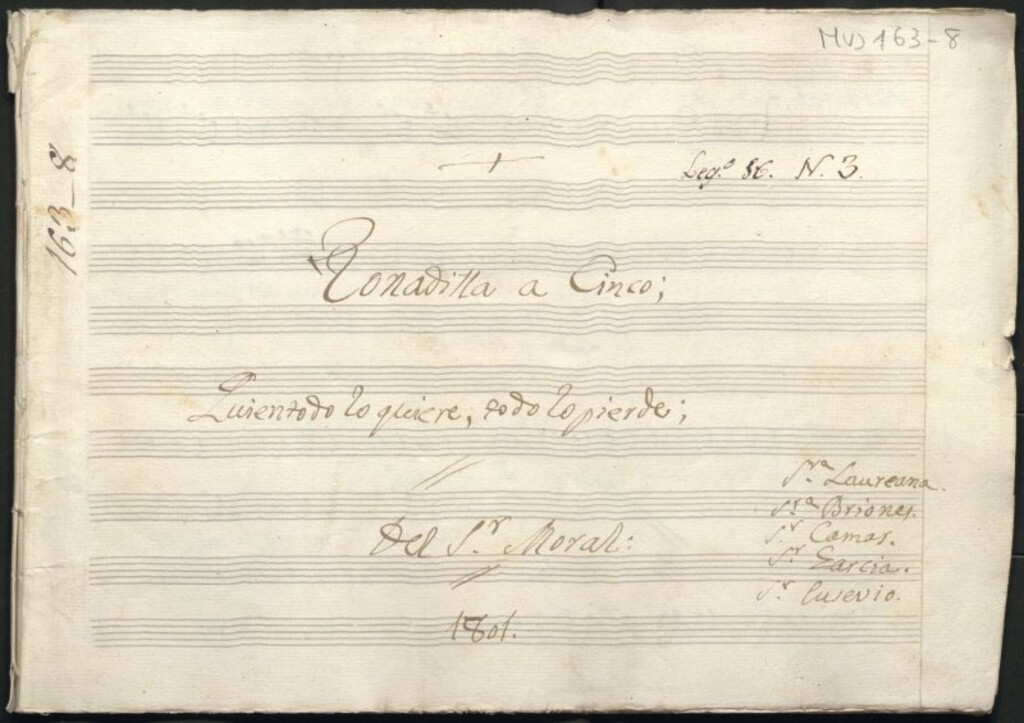 Mus 163-8
163-8
Leg.º 36. N. 3.
Tonadilla a Cinco;
Quien todo lo quiere, todo lo pierde;
S.ra Laureana.
S.ra Briones.
Del S.r Moral:
S.r Camas.
S.r Garcia.
S.r Eusevio.
1801.